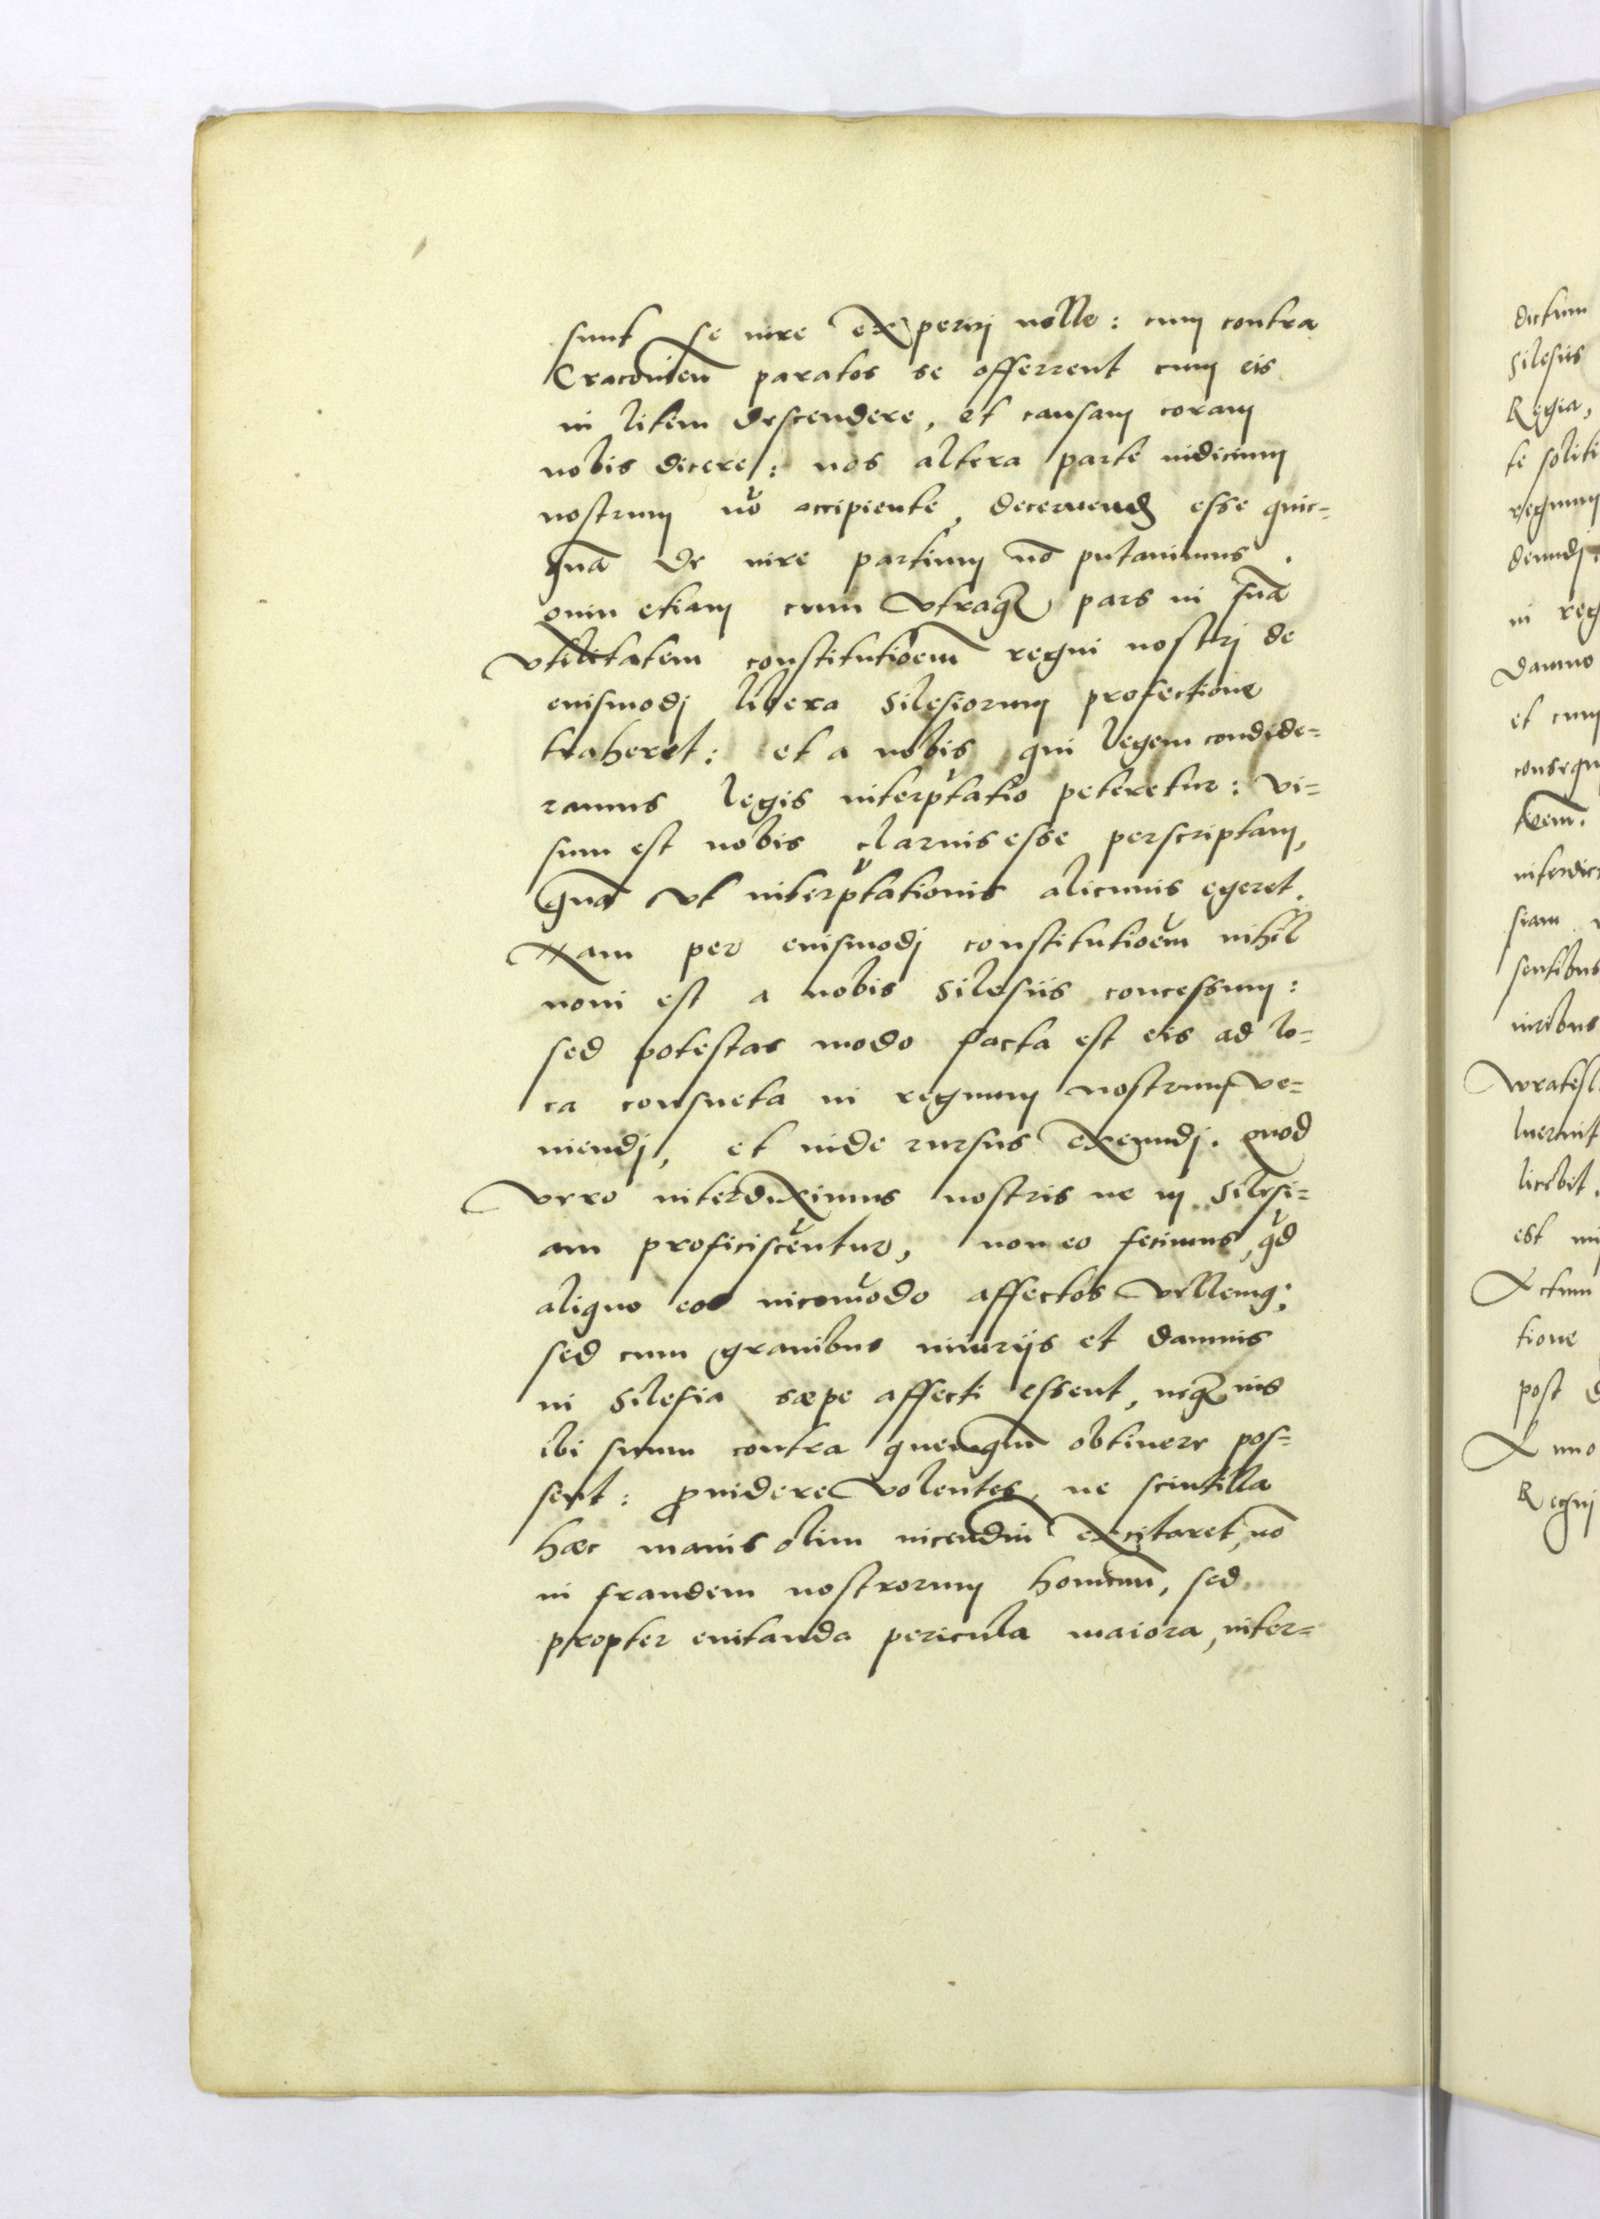 sunt se iure experiri nolle: cum contra
Cracovien̄ paratos se offerrent cum eis
in litem descendere, et causam coram
nobis dicere: nos altera parte iudicium
nostrum nō accipiente, decernend esse quic=
quā de iure partium nō putavimus.
quin etiam cum utraq pars in suā
utilitatem constitutioēm regni nostri de
eiusmodi libera Silesiorum profectione
traheret: et a nobis, qui legem condide=
ramus legis interp̄tatio peteretur: vi=
sum est nobis clarius esse perscriptam,
quā ut interp̄tationis alicuius egeret.
Nam per eiusmodi constitutioēm nihil
novi est a nobis Silesiis concessum:
sed potestas modo facta est eis ad lo=
ca consueta in regnum nostrum ve=
niendi, et inde rursus exeundi. quod
vero interdiximus nostris ne in Silesi=
am proficiscēntur, non eo fecimus, qd
aliquo eos incōmodo affectos vellemq;
sed cum gravibus iniuriis et damnis
in Silesia sæpe affecti essent, neq ius
ibi suum contra quenqm̄ obtinere pos=
sent: providere volentes, ne scintilla
hæc maius olim incendiū excitaret, nō
in fraudem nostrorum hominū, sed
propter evitanda pericula maiora, inter=
dictum
Silesiis
Regia,
te soliti
regnum
deundi.
in reg
damno
et cum
consequ
tioēm.
interdic
siam
sentibus
iuribus
Wratisl
luerunt
licebit.
est
Actum
tione
post d
Anno
Regni